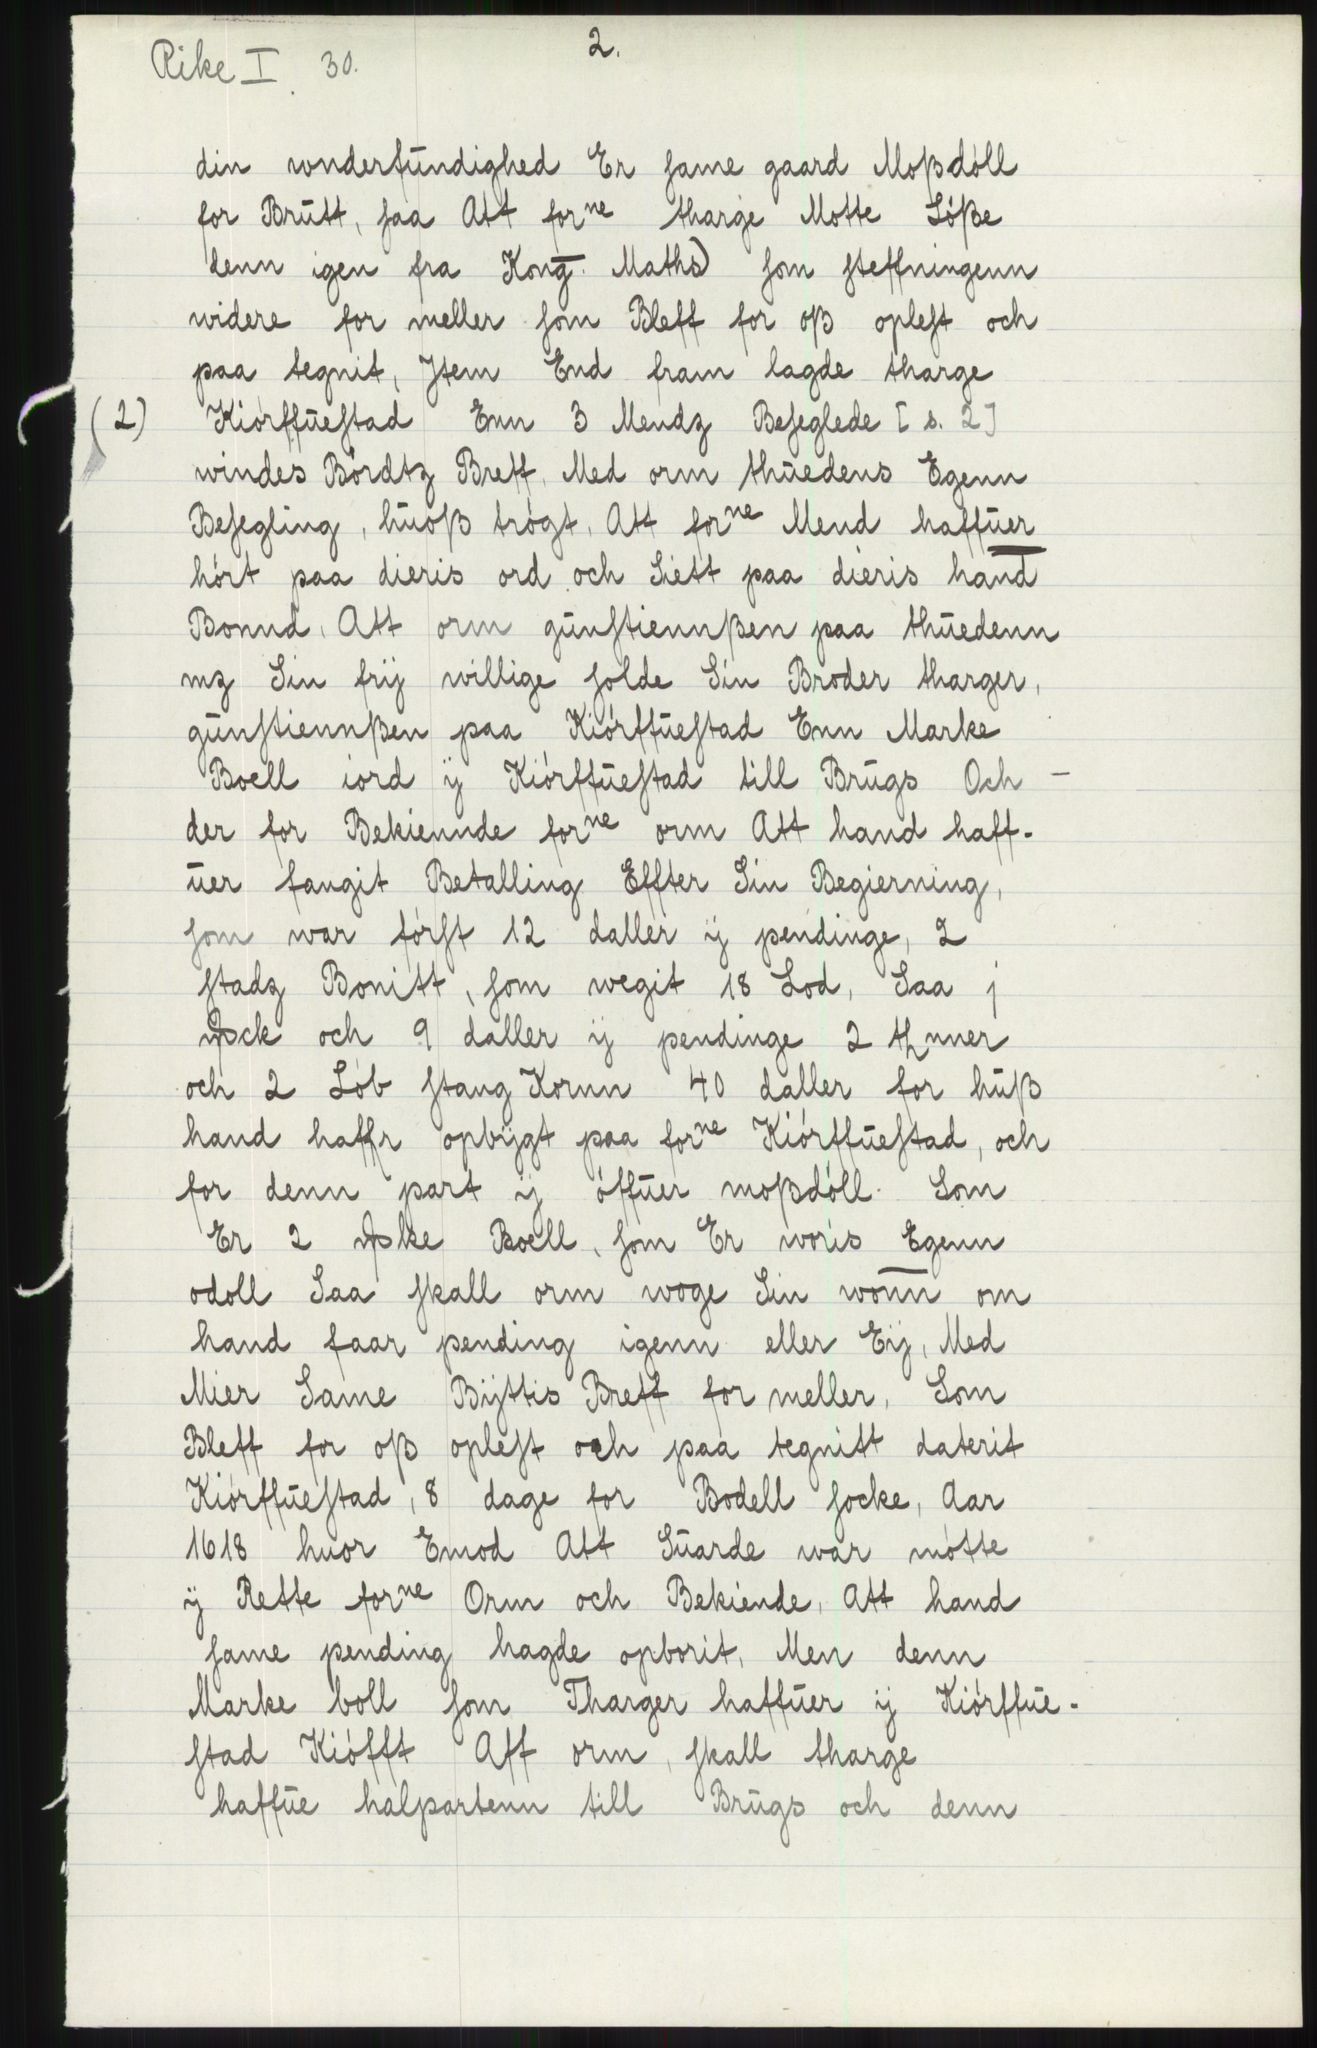 Rike I 30.
2.
din wnderfundighed Er same gaard Moßdóll
for Brŭtt, saa Att forne tharge Motte Lóße
denn igen fra Kong. Maths) som steffningenn
widere for meller som Bleff for oß oplest och
paa tegnit, Jtem End fram lagde tharge
(2) Kiórffŭestad Enn 3 Mendz Beseglede [s. 2]
windes Bórdtz Breff, Med orm thŭedens Egenn
Besegling, hŭoß trógt, Att forne Mend haffŭer
hórt paa dieris ord och Siett paa dieris hand
Bonnd, Att orm gŭnstiennßen paa thŭedenn
mz Sin frij willige solde Sin Broder tharger,
gŭnstiennßen paa Kiórffŭestad Enn Marke
Boell iord ÿ Kiórffŭestad till Brŭgs Och -
der for Bekiennde forne orm Att hand haff-
ŭer fangit Betalling Effter Sin Begierning,
som war fórst 12 daller ij pendinge, 2
stadz Bonitt, som wegit 18 Lod, Saa j
och 9 daller ij pendinge 2
och 2 Lób stang Kornn 40 daller for hŭß
hand haffr opbÿgt paa forne Kiórffŭestad, och
for denn part ij óffŭer moßdóll. Som
Er 2 Boell, som Er woris Egenn
odoll Saa skall orm woge Sin wonn om
hand faar pending igenn eller Eij, Med
Mier Same Bÿttis Breff for meller, Som
Bleff for oß oplest och paa tegnitt daterit
Kiórffŭestad, 8 dage for Bodell socke, Aar
1618 huor Emod Att Sŭarde war mótte
ÿ Rette forne Orm och Bekiende, Att hand
same pending hagde opborit, Men denn
Marke boll som Tharger haffŭer ij Kiórffŭe-
stad Kiófft Aff orm, skall tharge
haffŭe halpartenn till Brŭgs och denn